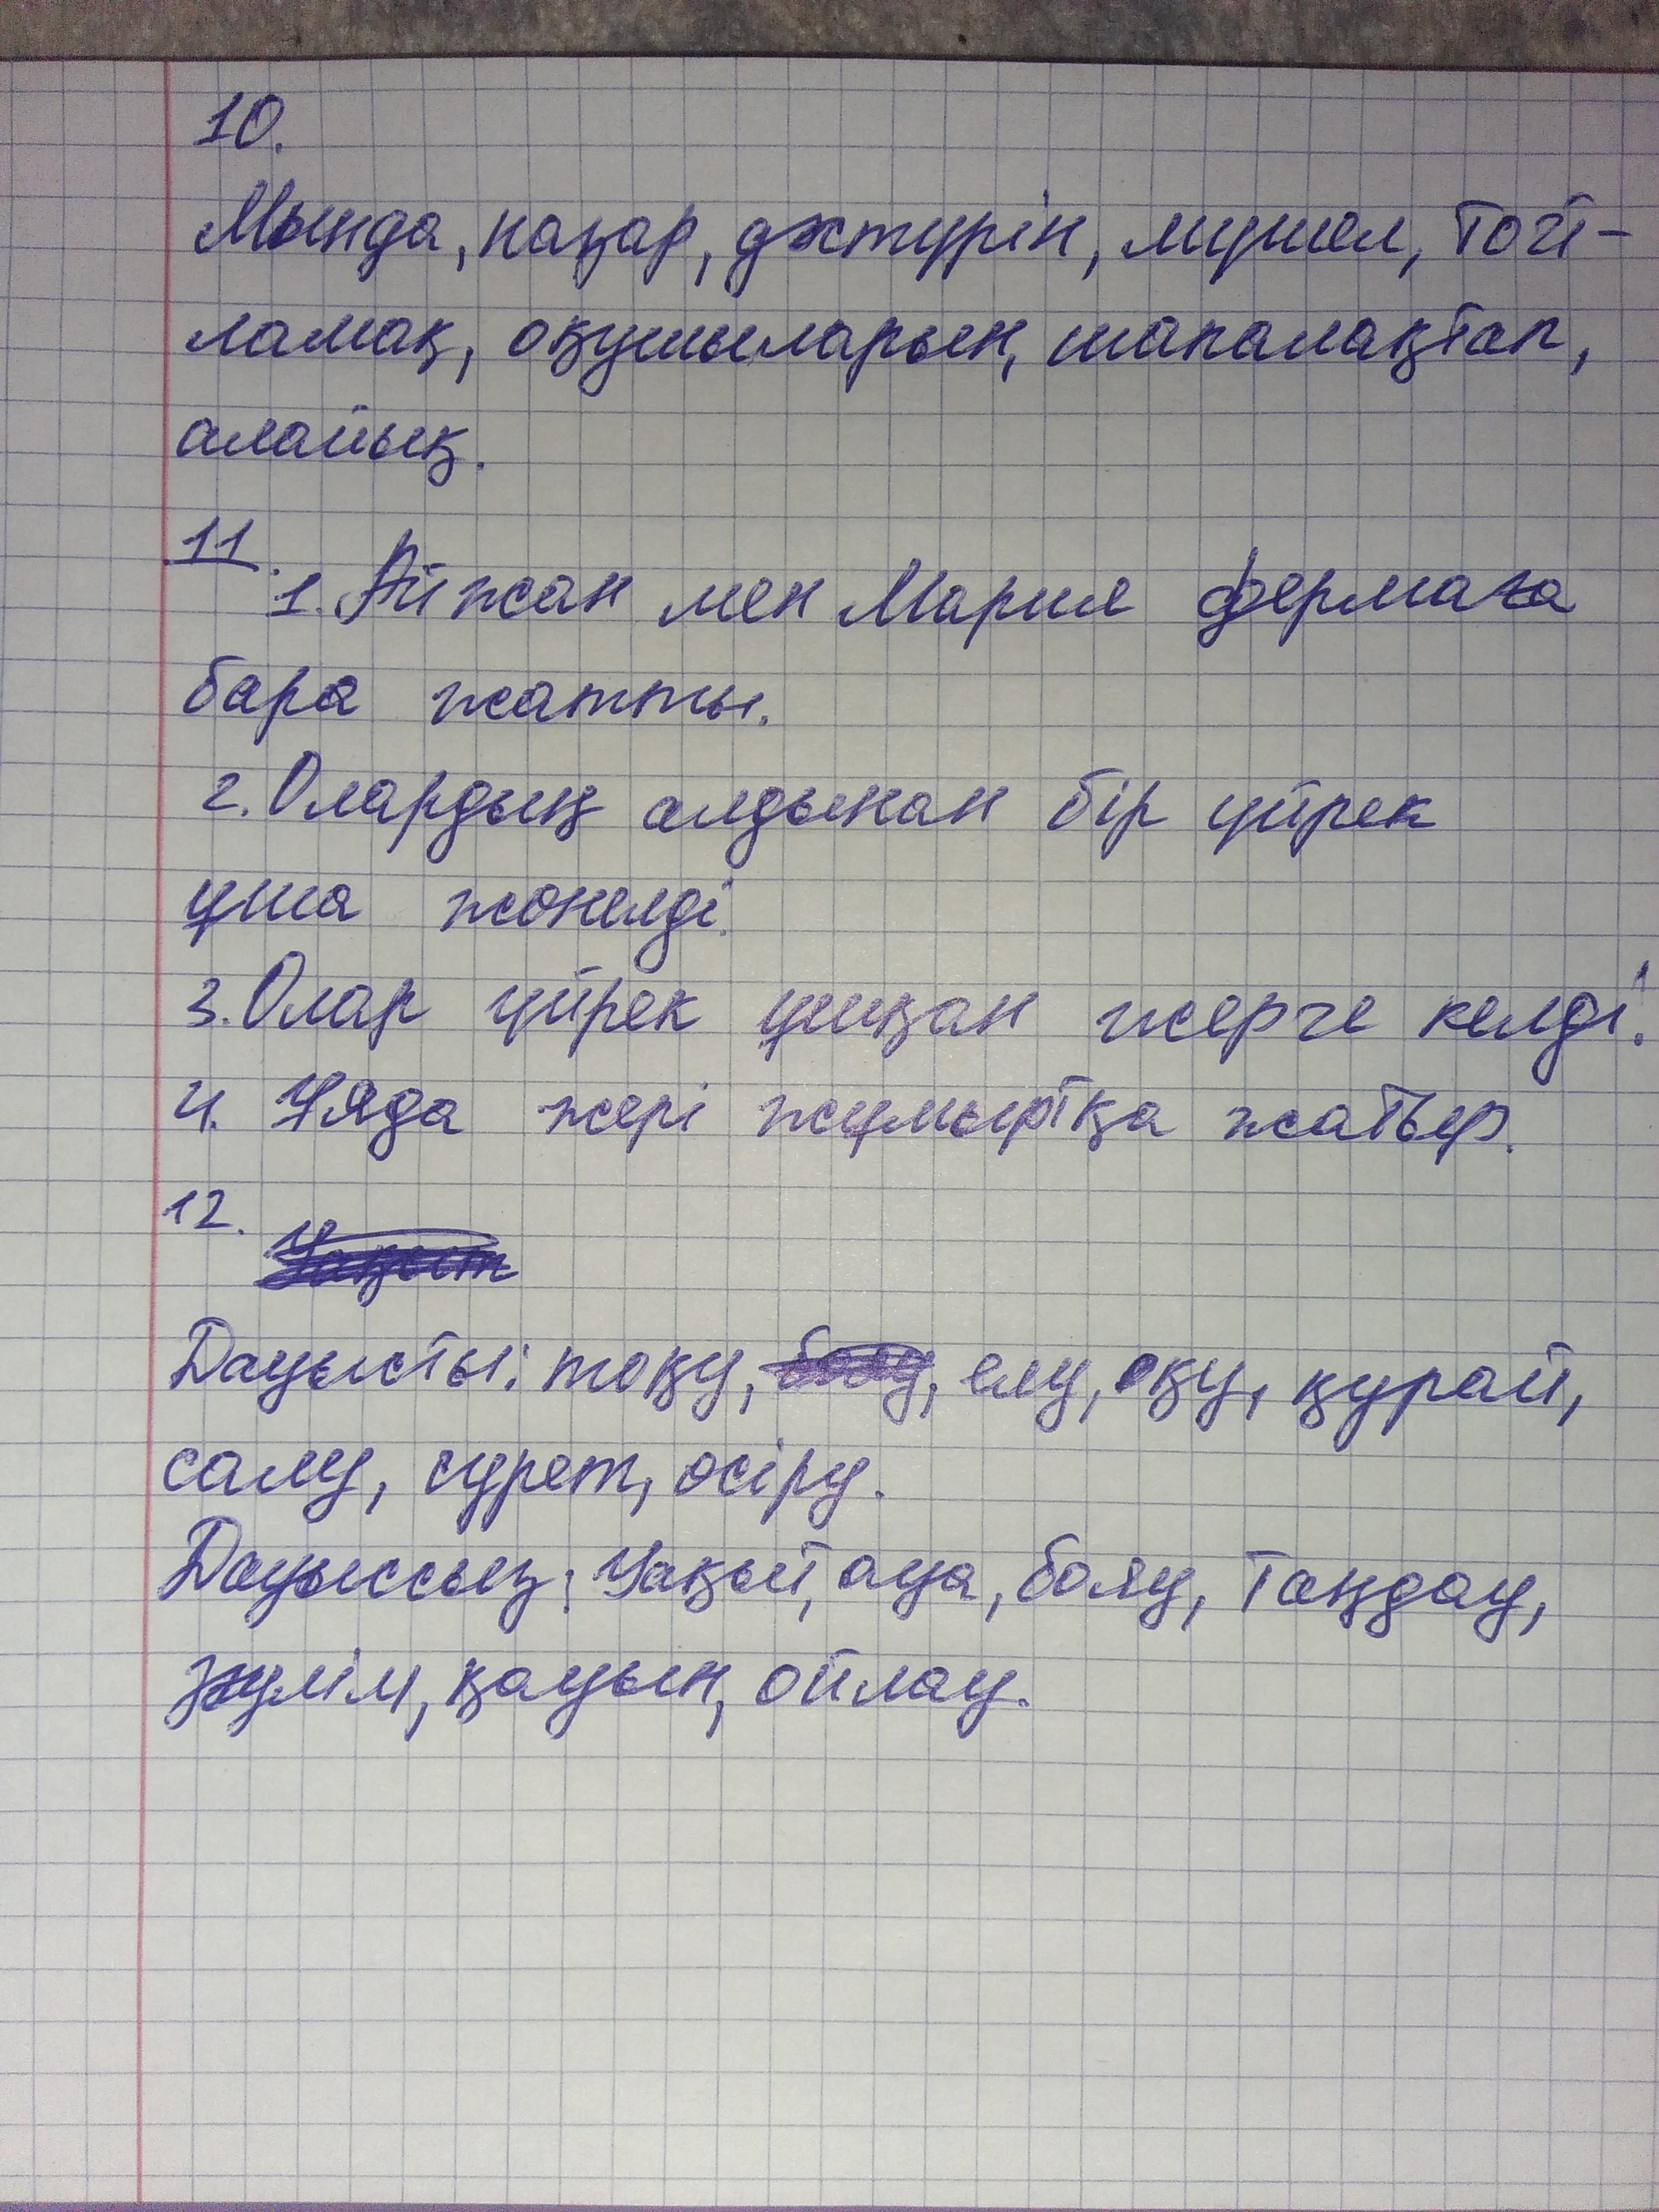 10.
Мында, назар, джтүрін, мүшел, той-
ламақ, оқушыларын, шапалақтап,
алайық.
11.
1. Айжан мен Мария фермаға
бара жатты.
2. Олардың алдынан бір үйрек
ұша жөнелді.
3. Олар үйрек ұшқан жерге келді.
4. Ұяда жері жұмыртқа жатыр.
12.
Дауысты: тоқу, елу, оқу, құрай,
салу, сурет, өсіру.
Дауыссыз: Уақыт, ауа, бояу, таңдау,
жүлім, қауын, ойлау.